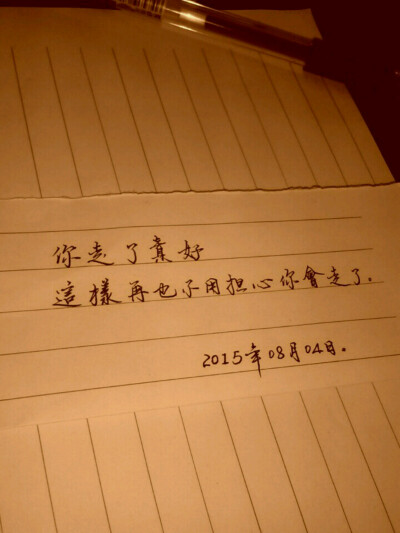 你走了真好
這樣再也不用担心你會走了.
2015年08月04日.